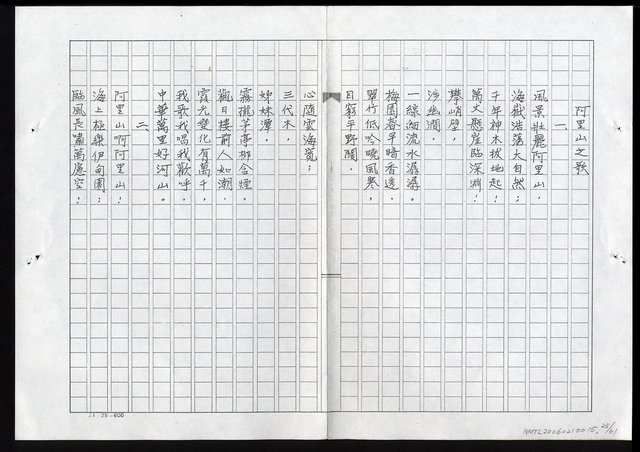 阿里山之歌
一、
風景壯麗阿里山，
海嶽浩蕩大自然；
千年神木拔地起！
萬丈懸崖臨深淵！
攀峭壁，
涉幽澗，
一線細流水潺潺。
梅園春早暗香透，
翠竹低吟晚風寒，
目窮平野闊，
心隨雲海寬；
三代木，
姊妹潭
霧攏茅亭柳含煙。
觀日樓前人如潮
霞光變化有萬千，
我歌我唱我歡呼，
中華萬里好河山。
二、
阿里山啊阿里山！
海上極樂伊甸園；
臨風長嘯萬慮空！
25×25=600
NMTL20060210015. 25/61